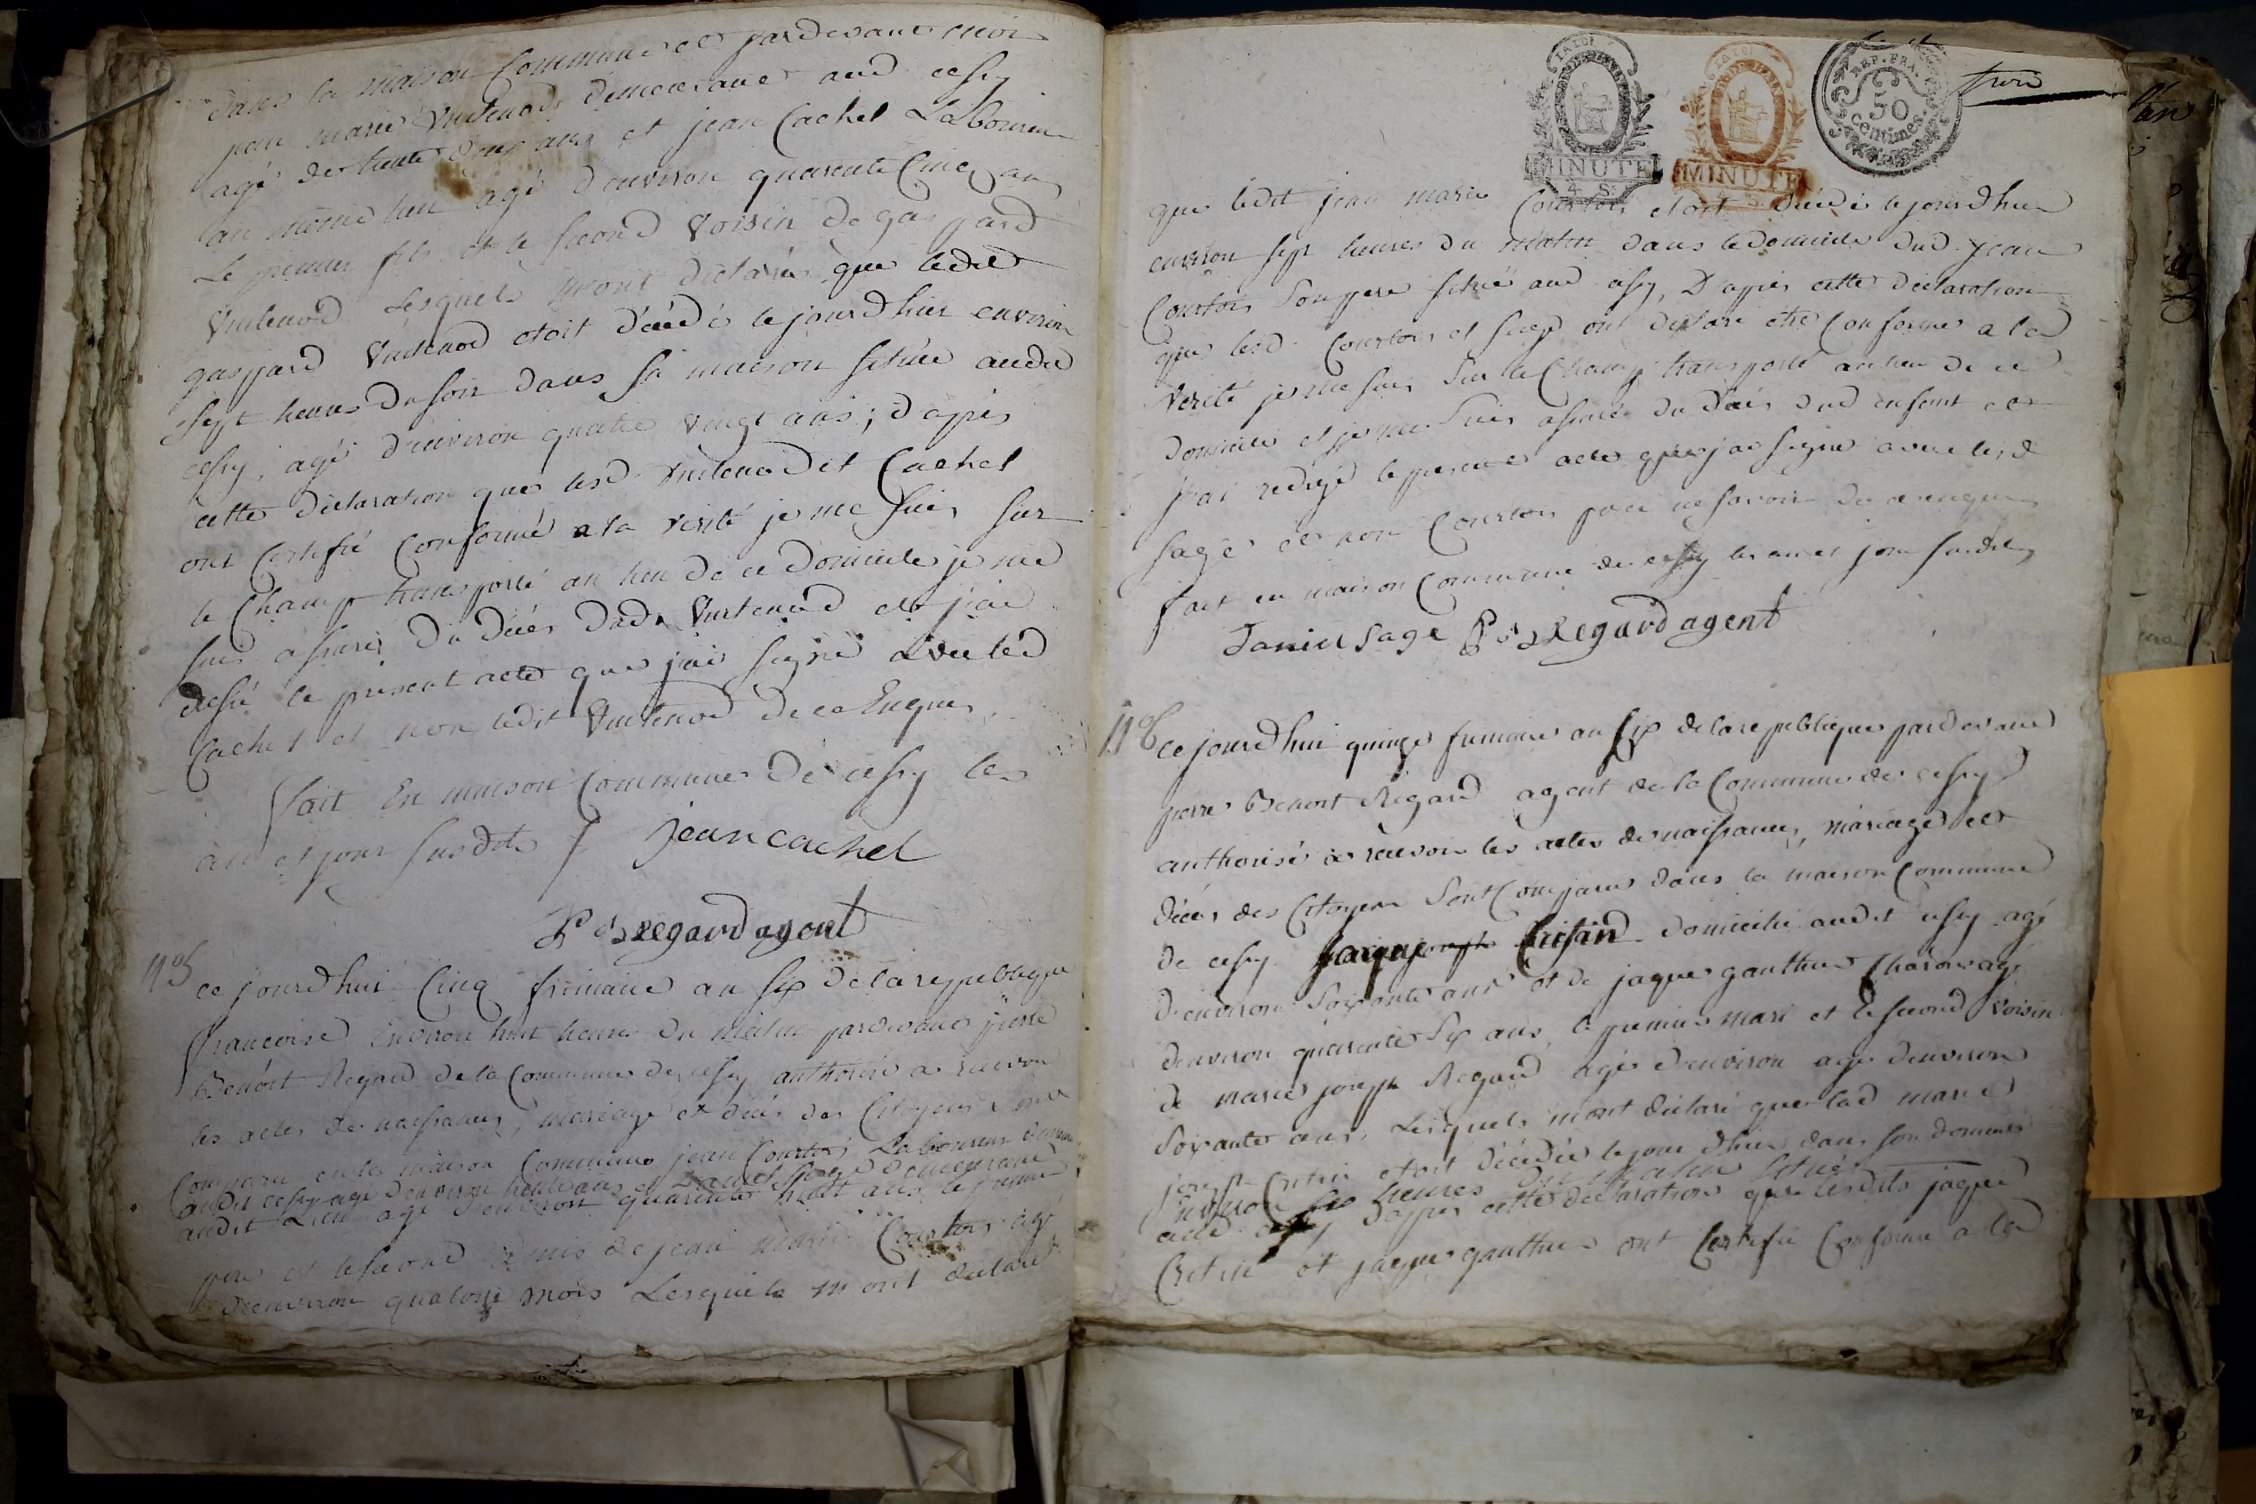 dans la maison Commune et pardevant moi
marie Vuitenod demeurant aud cessy
agé de trente deux ans et jean Cachel Laboureur
au même lieu agé d'environ quarente Cinq ans
Le premier fils et le second Voisin de gaspard
Vuitenod Lesquels m'ont déclaré que ledit
gaspard Vuitenod etoit décédé le jourdhier environ
sept heures du soir dans sa maison située audit
cessy, agé d'environ quatre vingt ans; d'après
cette déclaration que lesd Vuitenod et Cachel
ont Certifié Conforme a la verité je me suis sur
le Champ transporté au lieu de ce domicile je me
suis assuré du décès dud Vuitenod et j'ai
dressé le présent acte que j'ai signé avec led
Cachel et non ledit Vuitenod de ce Enquis
fait En maison Commune de cessy les
an et jour susdits / jean cachel
P B Regard agent
N° 5 ce jourdhui Cinq frimaire an six de la republique
francoise Environ huit heures du matin pardevant pierre
Benoit Regard de la Commune de cessy authorisé a recevoir
les actes de naissances, mariage et décès des Citoyens sont
Comparu en la maison Commune jean Courtois Laboureur
audit cessy agé d'environ trente ans et Daniel Sage demeurant
audit Lieu agé d'environ quarente huit ans le premier
pere et le second amis de jean marie Courtois agé
d'environ quatorze mois Lesquels m'ont déclaré
LA LOI
MINUTE
4 S.
LA LOI
MINUTE
REP. FRA.
50
centimes.
trois
que ledit jean marie Courtois etoit décédé le jourdhui
environ sept heures du matin dans le domicile dud jean
Courtois son pere situé aud cessy, D'après cette déclaration
que lesd. Courtois et Sage ont déclaré être Conforme a la
verité je me suis sur le Champ transporté au lieu de ce
domicile et je me suis assuré du décès dud enfant et
j'ai redigé le present acte que j'ai signé avec led
sage et non Courtois pour ne savoir de ce enquis
fait en maison Commune de cessy les an et jour susdits
Daniel sage P B Regard agent
N° 6 ce jourdhui quinze frimaire an six de la republique pardevant
pierre Benoit Regard agent de la Commune de cessy
authorisé a recevoir les actes de naissances, mariages et
décès des Citoyens sont Comparu dans la maison Commune
de cessy domicilié audit cessy agé
d'environ soixante ans et de jaque gauthier Charon agé
d'environ quarente six ans, le premier mari et le second voisin
de marie joseph Regard agée d'environ agée d'environ
soixante ans, Lesquels m'ont déclaré que lad marie
joseph etoit décédée le jourdhui dans son domicile
environ six heures du matin situé
aud cessy D'après cette déclaration que lesdits jaque
Cretin et jaque gauthier ont Certifié Conforme a la